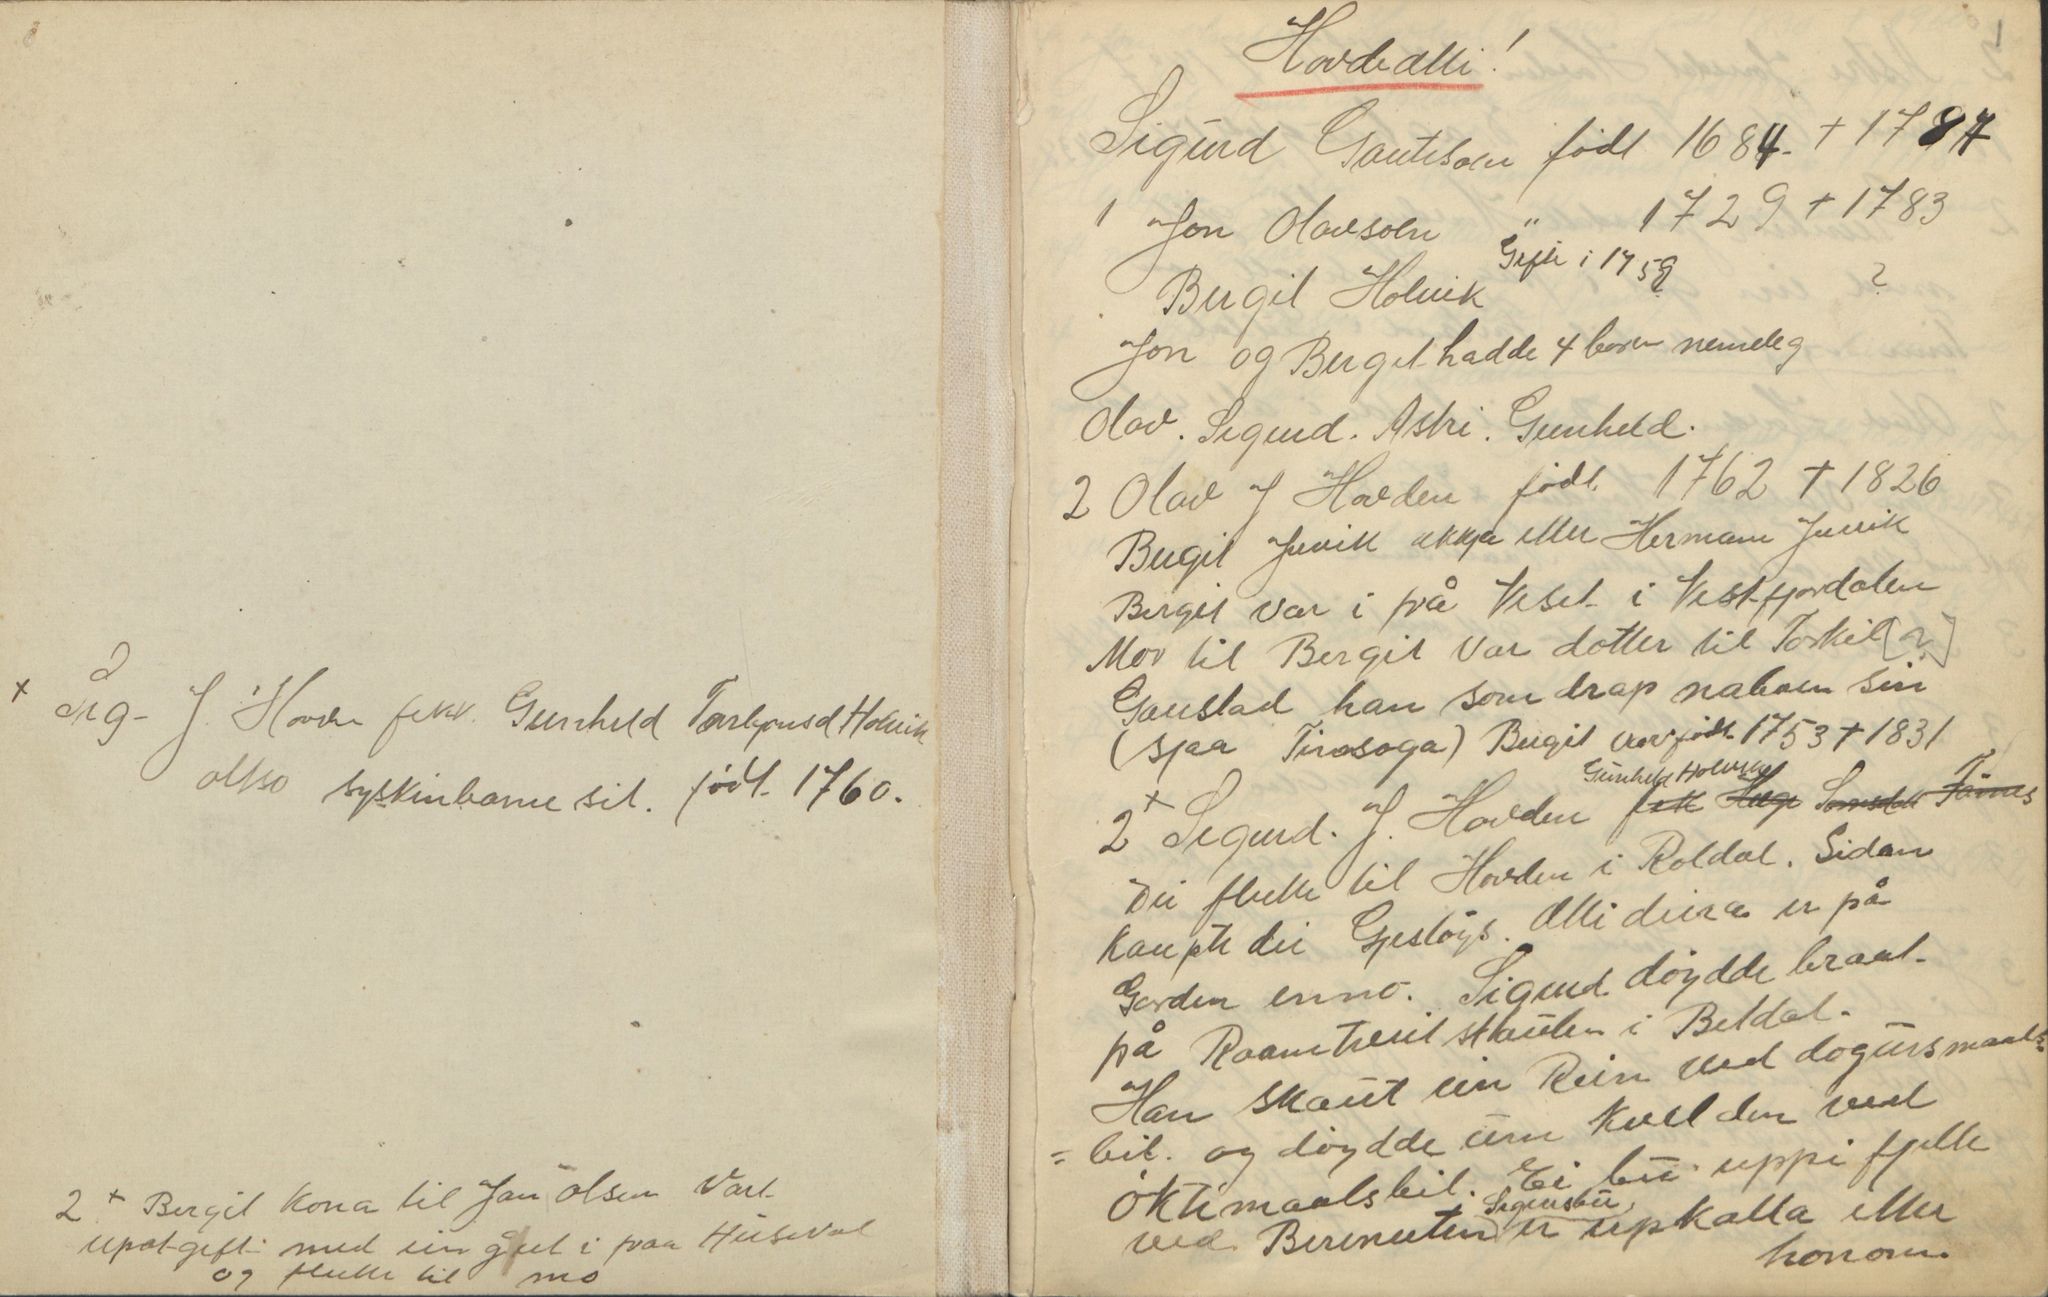 2
x Sig- J. Hovden fekk Gunheld Torbjønsd Holvik
altso syskinbarne sit. født 1760.
2 x Bergit kona til Jon Olsen Vart
upat gift med ein gut i fraa Huseval
og flutte til mo
1
Hovdeætti!
Sigurd Gautsoen født 1684 - + 1787
1 Jon Olavsoen " 1729 + 1783
Gifte i 1759
Bergit Holvik ?
Jon og Bergit hadde 4 born nemeleg
Olav. Sigurd. Astri. Gunheld.
2 Olav J Hovden født 1762 + 1826
Bergit Juvik ekkja etter Hermann Juvik
Bergit var i frå Veset i Vestfjordalen
Mor til Bergit var dotter til Torkil [?]
Gaustad han som drap naboen sin
(sjaa Tinnsoga) Bergit var født 1753 + 1831
Gunheld Holvik
2 x Sigurd. J. Hovden fekk Hæge Somsdat Tovnes
Dei flutte til Hovden i Roldal. Sidan
kaupte dei Gjestøys. Ætti deira er på
Garden enno. Sigurd døydde braat
på Raamtveitstaulen i Beldal.
Han skaut ein Rein ved dogursmaals=
= bil. og døydde um kvelden ved
øktemaalsbil. Ei bu uppi fjelle
Sigursbu
ved Berenuten er upkalla etter
honom.